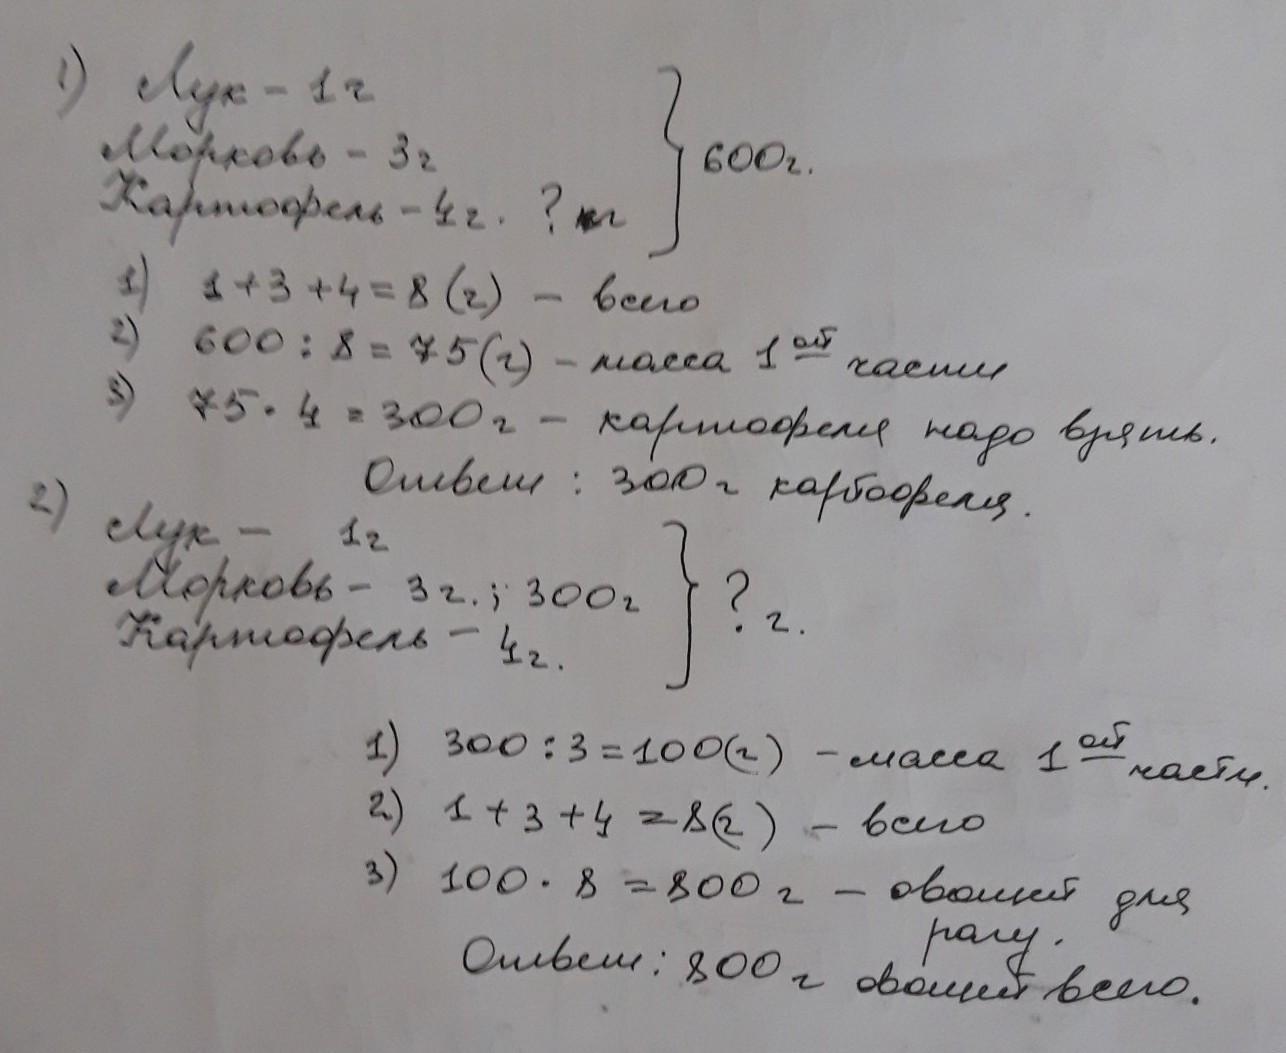 1) Лук - 1 г
Морковь - 3 г
Картофель - 4 г. ? г
600 г.
1) 1 + 3 + 4 = 8 (г) - всего
2) 600 : 8 = 75 (г) - масса 1 ой части
3) 75 · 4 = 300 г - картофеля надо взять.
Ответ : 300 г картофеля.
2)
Лук - 1 г
Морковь - 3 г. ; 300 г
Картофель - 4 г.
? г.
1) 300 : 3 = 100 (г) - масса 1 ой части.
2) 1 + 3 + 4 = 8 (г) - всего
3) 100 · 8 = 800 г - овощей для
рагу.
Ответ : 800 г овощей всего.